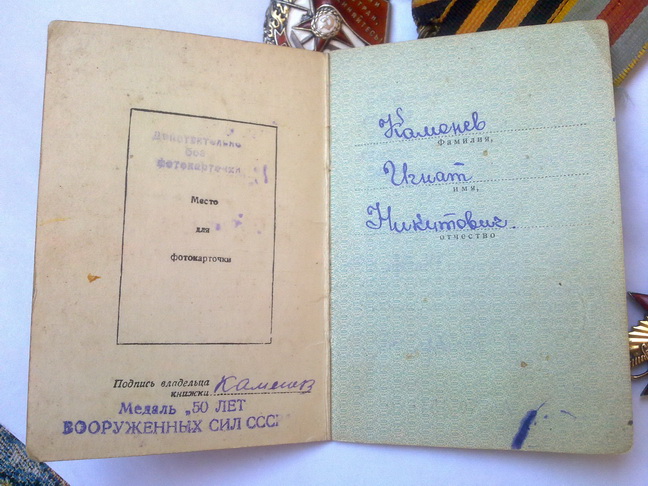 Действительно
без
фотокарточки
Место
для
фотокарточки
Подпись владельца
книжки Каменев
Медаль „50 ЛЕТ
ВООРУЖЕННЫХ СИЛ СССР"
Каменев
фамилия,
Игнат
имя,
Никитович
отчество